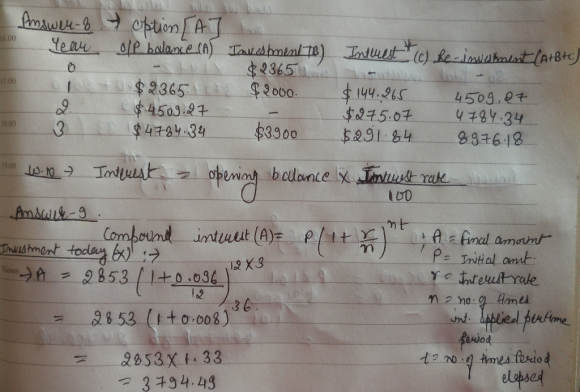 Answer-8 → option [A]
Year O/P balance (A) Investment (B) Interest* (C) Re-investment (A+B+C)
0 - $2365 - -
1 $2365 $2000. $144.265 4509.27
2 $4509.27 - $275.07 4784.34
3 $4784.34 $3900 $291.84 8976.18
W.N → Interest = opening balance × Interest rate
100
Answer-9.
Compound interest (A) = P(1 + r/n)^nt ; A = Final amount
P = Initial amt.
Investment today (X) :→ r = Interest rate
→ A = 2853 (1 + 0.096/12)^12×3 n = no. of times
int. applied per time
= 2853 (1+0.008)^36. period
= 2853 × 1.33 t = no. of times period
= 3794.49 elapsed